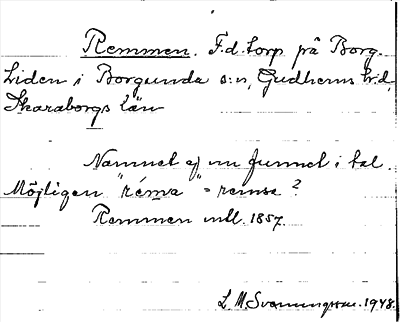 Remmen. F.d. torp på Borg-
Liden i Borgunda s:n, Gudhems h:d,
Skaraborgs län
Namnet ej nu funnet i tal.
Möjligen "réma" = remsa?
Remmen utl. 1857.
L. M. Svenungsson. 1948.